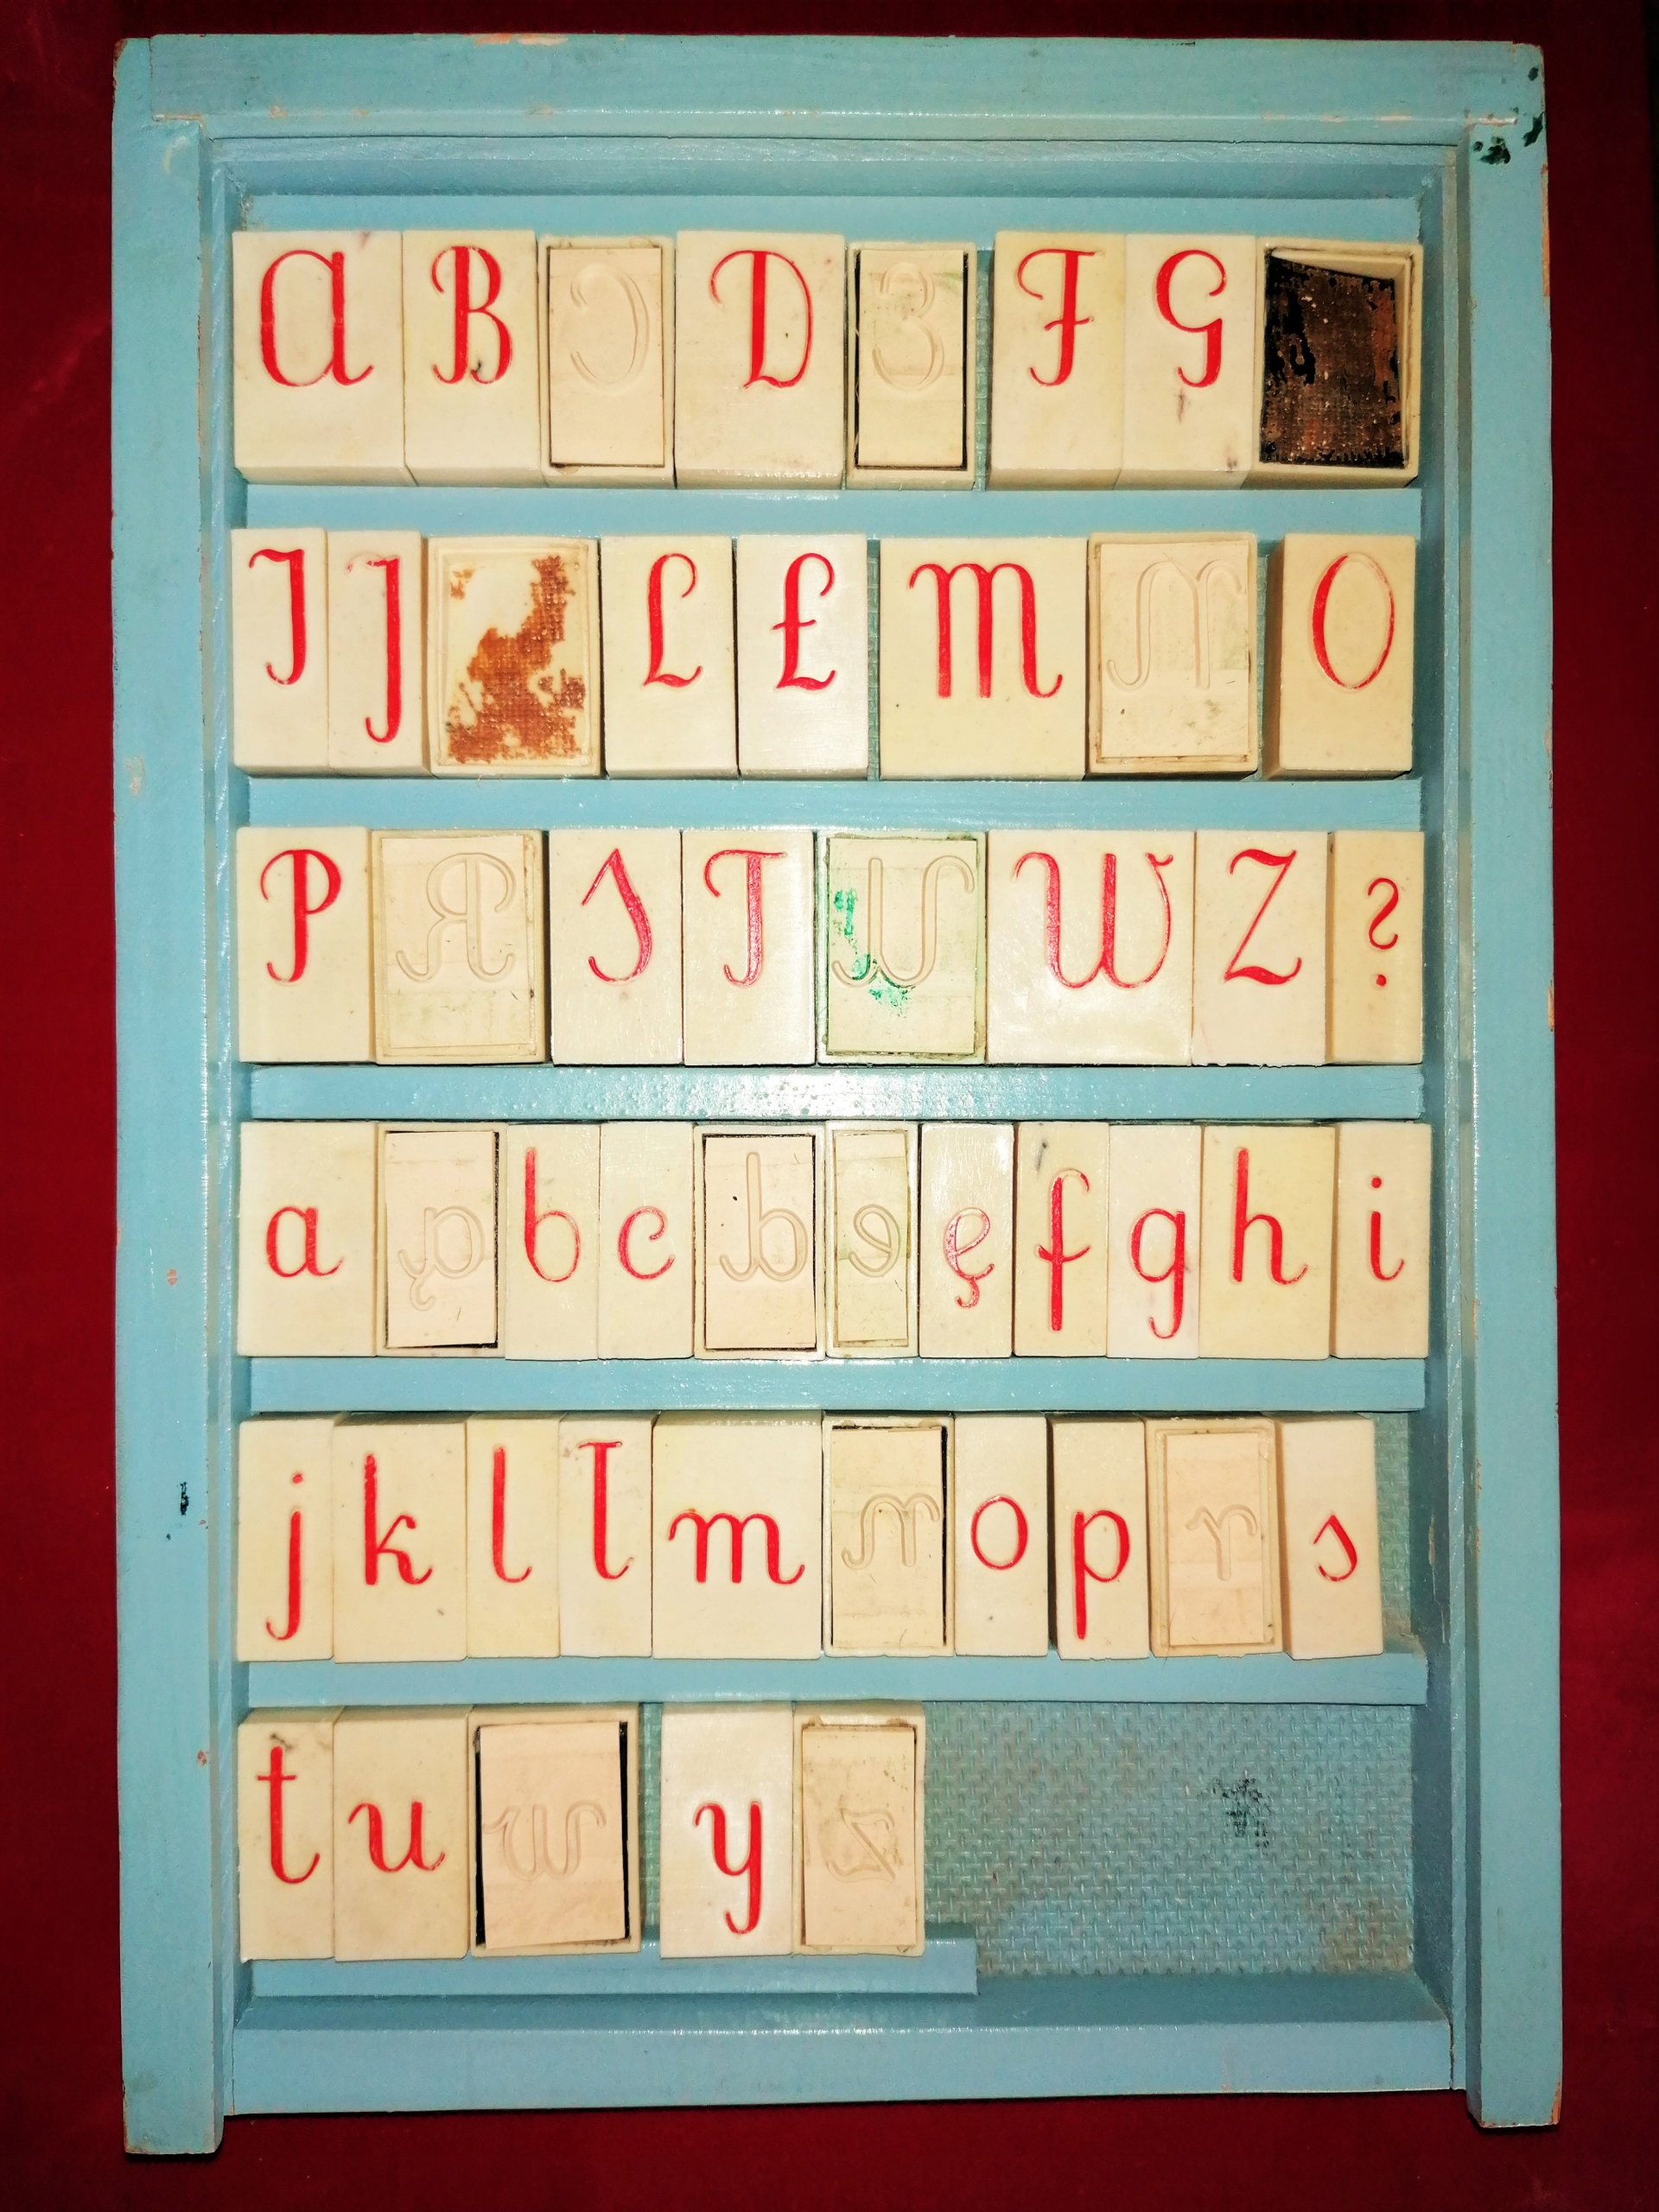 A B C D E F G
I J L Ł M N O
P R S T U W Z ?
a ą b c d e ę f g h i
j k l ł m n o p r s
t u w y z